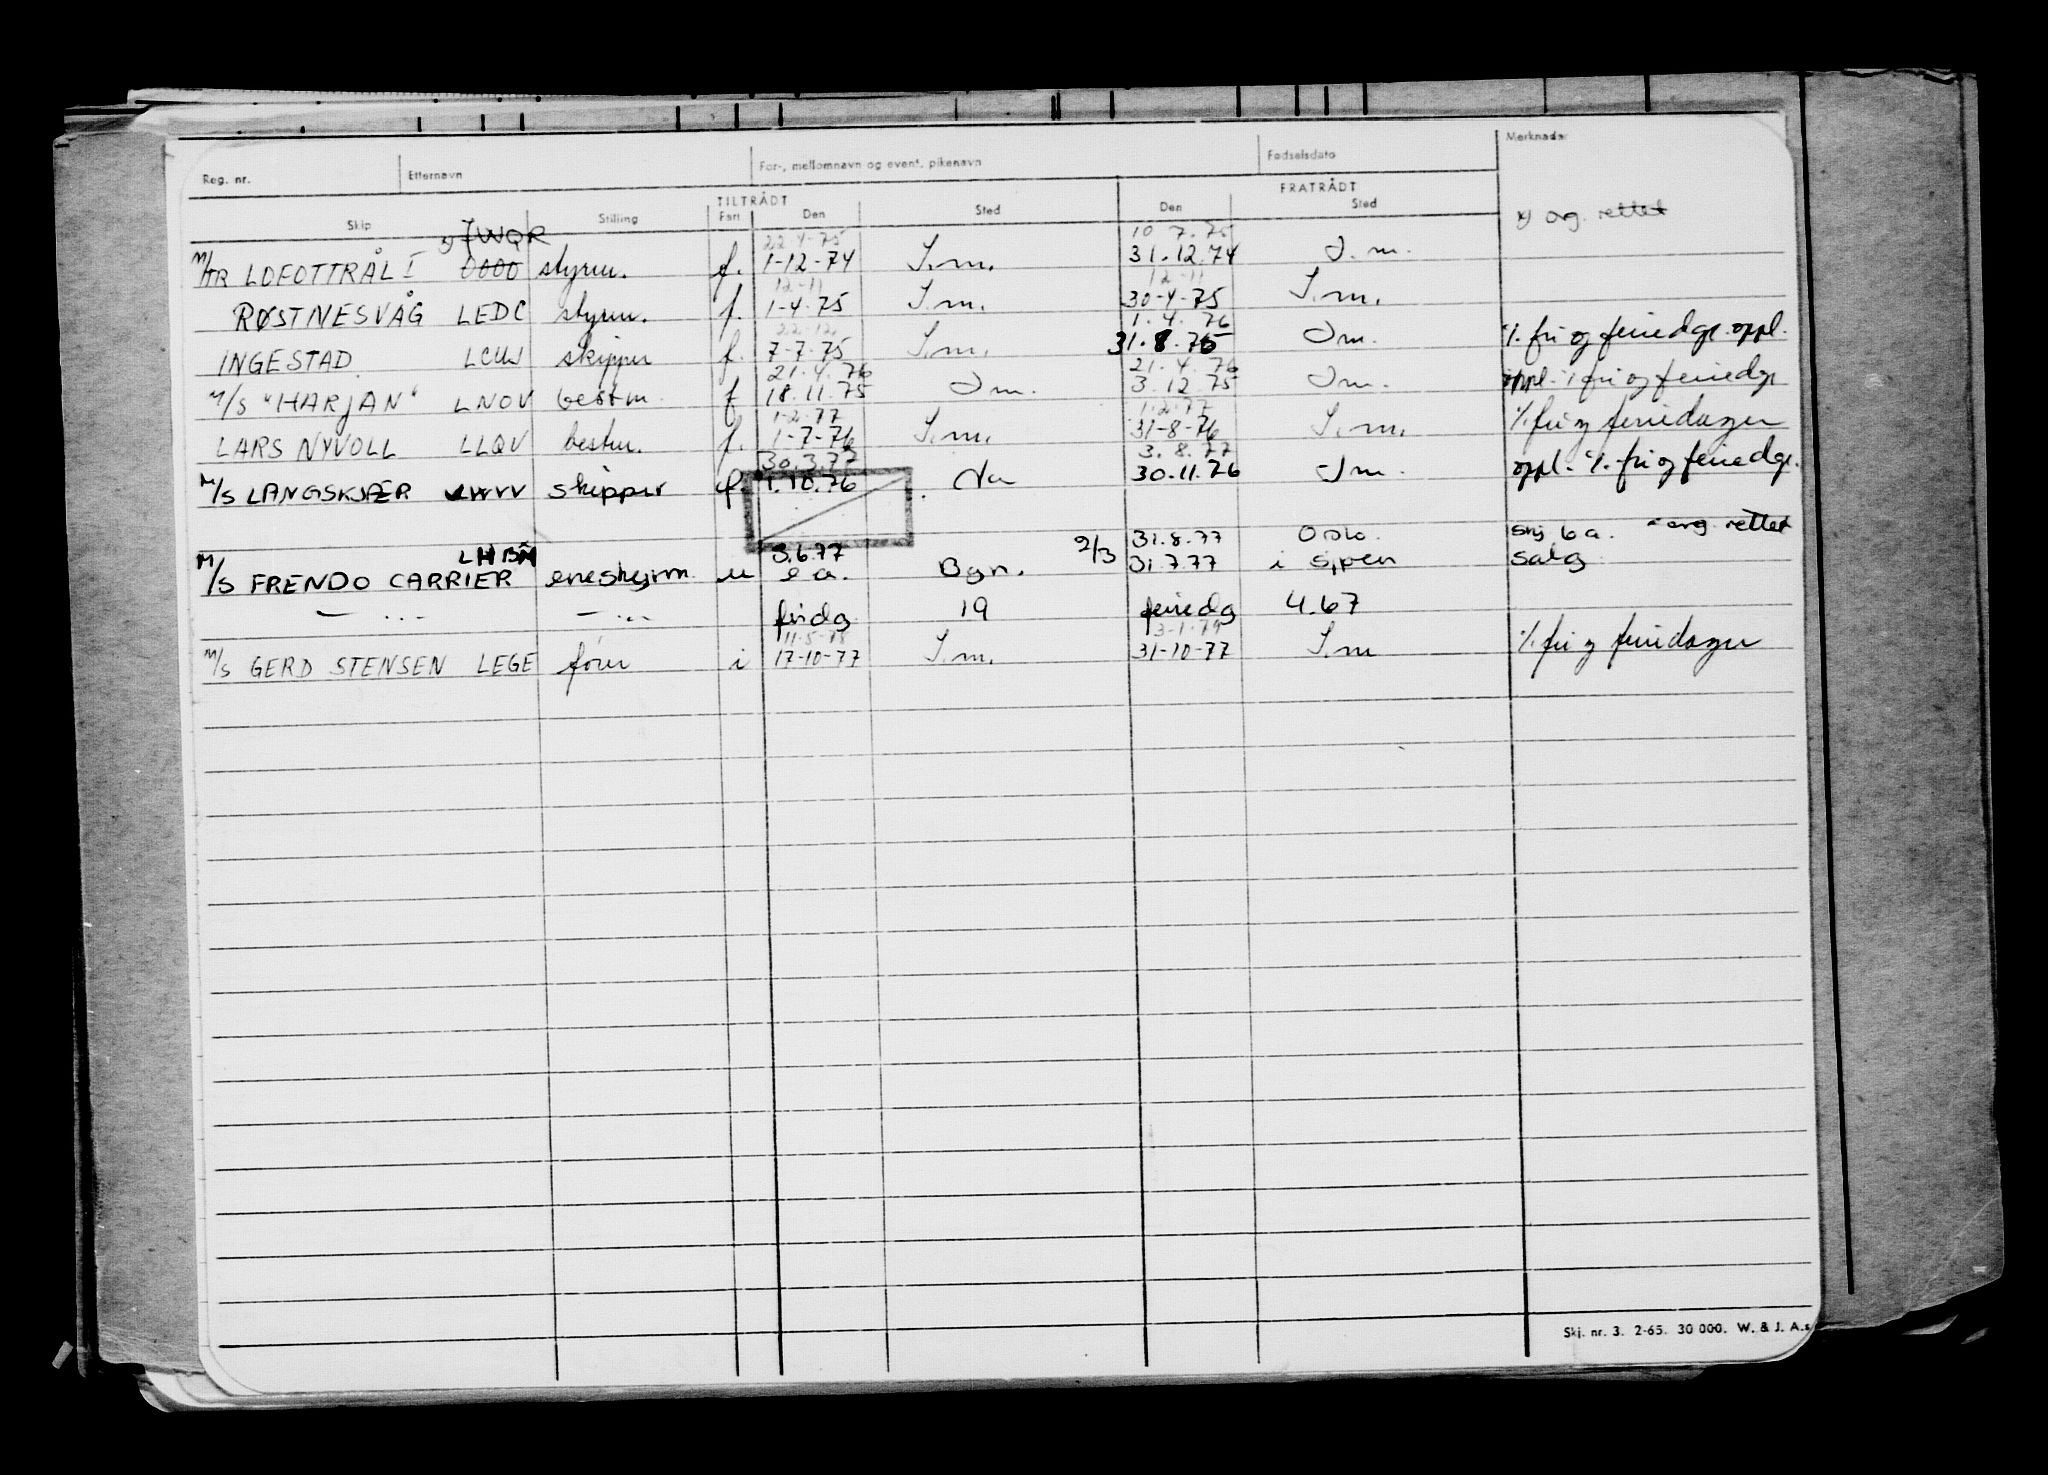 Reg. nr. Etternavn For-, mellomnavn og event. pikenavn Fødselsdato Merknader
TILTRÅDT FRATRÅDT
Skip Stilling Fart Den Sted Den Sted
x) JWQR 22.4-75 10.7.75 x) org. rettet
M/TR LOFOTTRÅL I OOOO styrm. f. 1-12-74 S.m. 31.12.74 S.m.
12-11 12-11
RØSTNESVÅG LEDC styrm. f. 1-4-75 S.m. 30-4-75 S.m.
22-12 1.4.76
INGESTAD LCUW skipper f. 7-7-75 S.m. 31.8.75 Sm. % fri og feriedgr. oppl.
21.4.76 21.4.76
M/S "HARJAN" LNOV bestm. f 18.11.75 Sm. 3.12.75 Sm. oppl. % fri og feriedgr
1-2-77 1.2.77
LARS NYVOLL LLQV bestm. f. 1-7-76 S.m. 31-8-76 S.m. % fri og feriedager
30.3.77 3.8.77
M/S LANGSKJÆR skipper f. 1.10.76 30.11.76 Sm. oppl. % fri og feriedgr.
31.8.77 Oslo. skj 6a. org. rettet
LHBM 3.6.77 2/3
M/S FRENDO CARRIER eneskjrm u e a. Bgn. 31.7.77 i sjøen salg
— ... — ... fridg 19 feriedg 4.67
11-5-78 3-1-79
M/S GERD STENSEN LEGE fører i 17-10-77 S.m. 31-10-77 S.m % fri og feriedager
Skj. nr. 3. 2-65. 30 000. W. & J. A.s